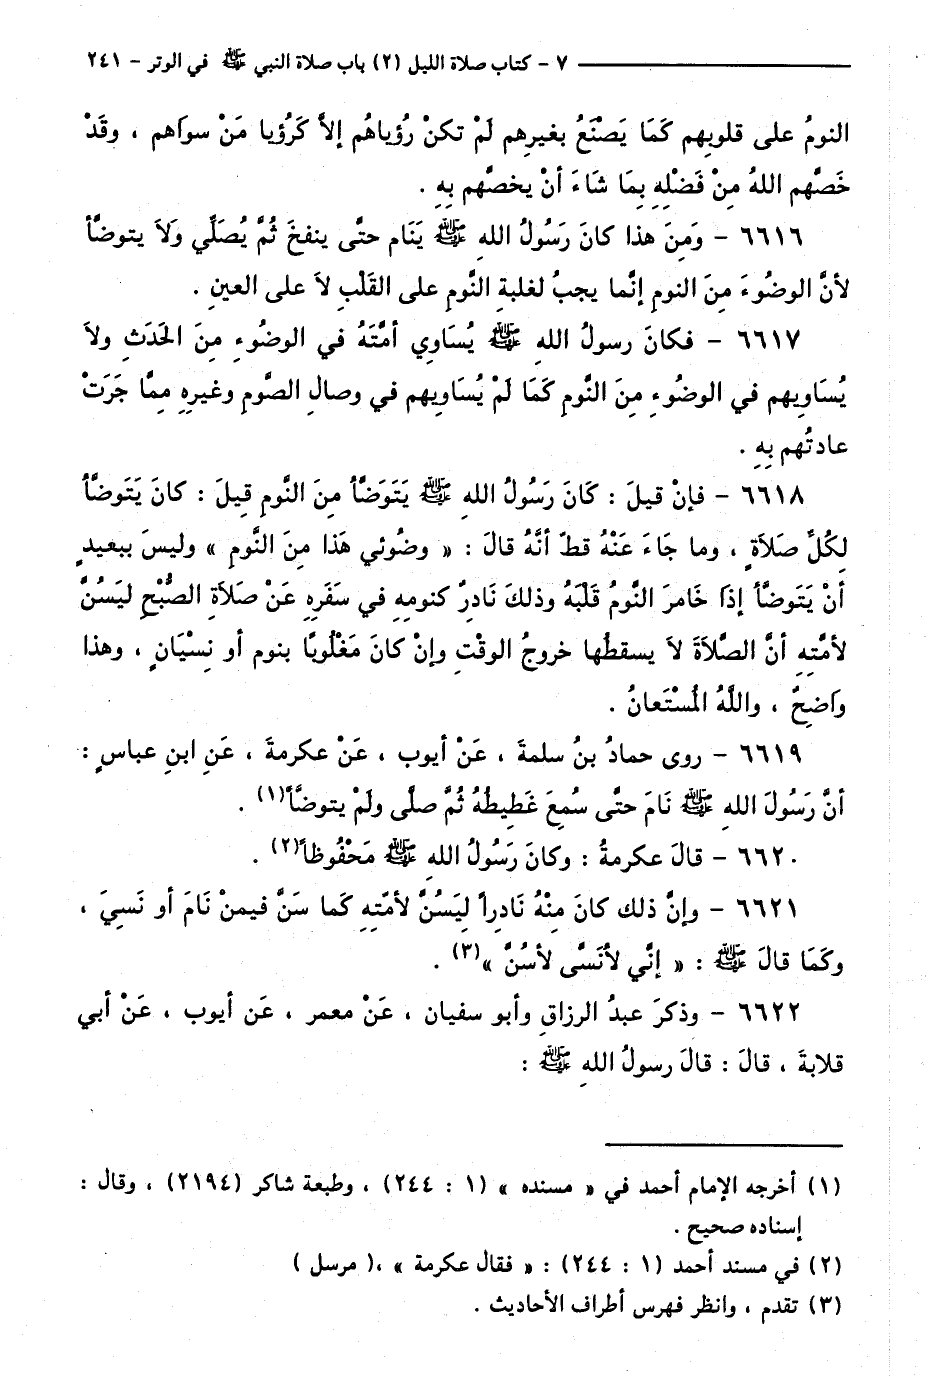 ٧ - كتاب صلاة الليل (٢) باب صلاة النبي ﷺ في الوتر - ٢٤١
النومُ على قلوبِهم كَمَا يَصْنَعُ بغيرِهم لَمْ تكنْ رُؤياهُم إلاَّ كَرُؤيا مَنْ سواَهم ، وقَدْ
خَصَّهم اللهُ مِنْ فَضْلِهِ بِمَا شَاءَ أنْ يخصَّهم بِهِ .
٦٦١٦ - وَمِنَ هذا كانَ رَسُولُ اللهِ ﷺ يَنَام حتَّى ينفخَ ثُمَّ يُصَلِّي وَلاَ يتوضَّأ
لأنَّ الوضُوءَ مِنَ النومِ إنَّما يجبُ لغلبةِ النَّومِ على القَلْبِ لاَ على العينِ .
٦٦١٧ - فكانَ رسولُ اللهِ ﷺ يُسَاوِي أمَّتَهُ في الوضُوءِ مِنَ الحَدَثِ ولاَ
يُسَاوِيهم في الوضُوءِ مِنَ النَّومِ كَمَا لَمْ يُسَاوِيهم في وصالِ الصَّومِ وغيرِهِ مِمَّا جَرَتْ
عادتُهم بِهِ .
٦٦١٨ - فإنْ قيلَ : كَانَ رَسُولُ اللهِ ﷺ يَتَوَضَّأ مِنَ النَّومِ قيلَ : كانَ يَتَوضَّأُ
لِكُلِّ صَلاَةٍ ، وما جَاءَ عَنْهُ قطّ أنَّهُ قالَ : « وضُوئي هَذَا مِنَ النَّومِ » وليسَ ببعيدٍ
أنْ يَتَوضَّأ إذَا خَامرَ النَّومُ قَلبَهُ وذلكَ نَادرٌ كنومِهِ في سفَرِهِ عَنْ صَلاَةِ الصُّبْحِ ليَسُنَّ
لأمَّتِهِ أنَّ الصَّلاَةَ لاَ يسقطُها خروجُ الوقْتِ وإنْ كانَ مَغْلُوبًا بنومٍ أو نِسْيَانٍ ، وهذا
واَضِحٌ ، واللَّهُ المُسْتَعانُ .
٦٦١٩ - روى حمادُ بنُ سلمةَ ، عَنْ أيوب ، عَنْ عكرمةَ ، عَنِ ابنِ عباسٍ :
أنَّ رَسُولَ اللهِ ﷺ نَامَ حتَّى سُمعَ غَطِيطُهُ ثُمَّ صلَّى ولَمْ يتوضَّأ(١) .
٦٦٢٠ - قالَ عكرمةُ : وكانَ رَسُولُ اللهِ ﷺ مَحْفُوظاً(٢) .
٦٦٢١ - وإنَّ ذلك كانَ مِنْهُ نَادِراً ليَسُنَّ لأمَّتِهِ كَما سَنَّ فيمنْ نَامَ أو نَسيَ ،
وكَمَا قالَ ﷺ : « إنَّي لأنَسَّى لأسُنَّ »(٣) .
٦٦٢٢ - وذكرَ عبدُ الرزاقِ وأبو سفيان ، عَنْ معمر ، عَن أيوب ، عَنْ أبي
قلابةَ ، قالَ : قالَ رسولُ اللهِ ﷺ :
(١) أخرجه الإمام أحمد في « مسنده » (١ : ٢٤٤) ، وطبعة شاكر (٢١٩٤) ، وقال :
إسناده صحيح .
(٢) في مسند أحمد (١ : ٢٤٤) : « فقال عكرمة » ،( مرسل )
(٣) تقدم ، وانظر فهرس أطراف الأحاديث .